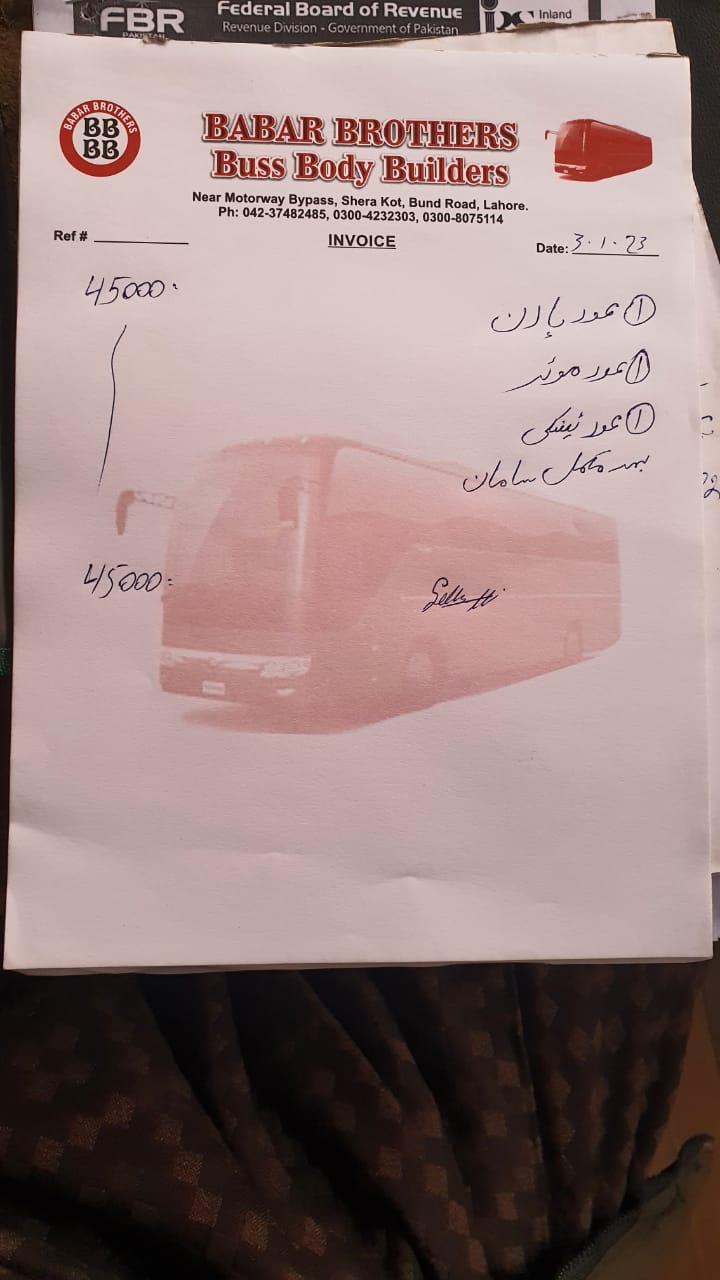 FBR
PAKISTAN
Federal Board of Revenue
Revenue Division - Government of Pakistan
Inland
BABAR BROTHERS
BB
BB
BABAR BROTHERS
Buss Body Builders
Near Motorway Bypass, Shera Kot, Bund Road, Lahore.
Ph: 042-37482485, 0300-4232303, 0300-8075114
Ref #
INVOICE
Date: 3.1.23
45000
① عدد ہارن
① عدد موٹر
① عدد ٹینکی
بمعہ مکمل سامان
45000